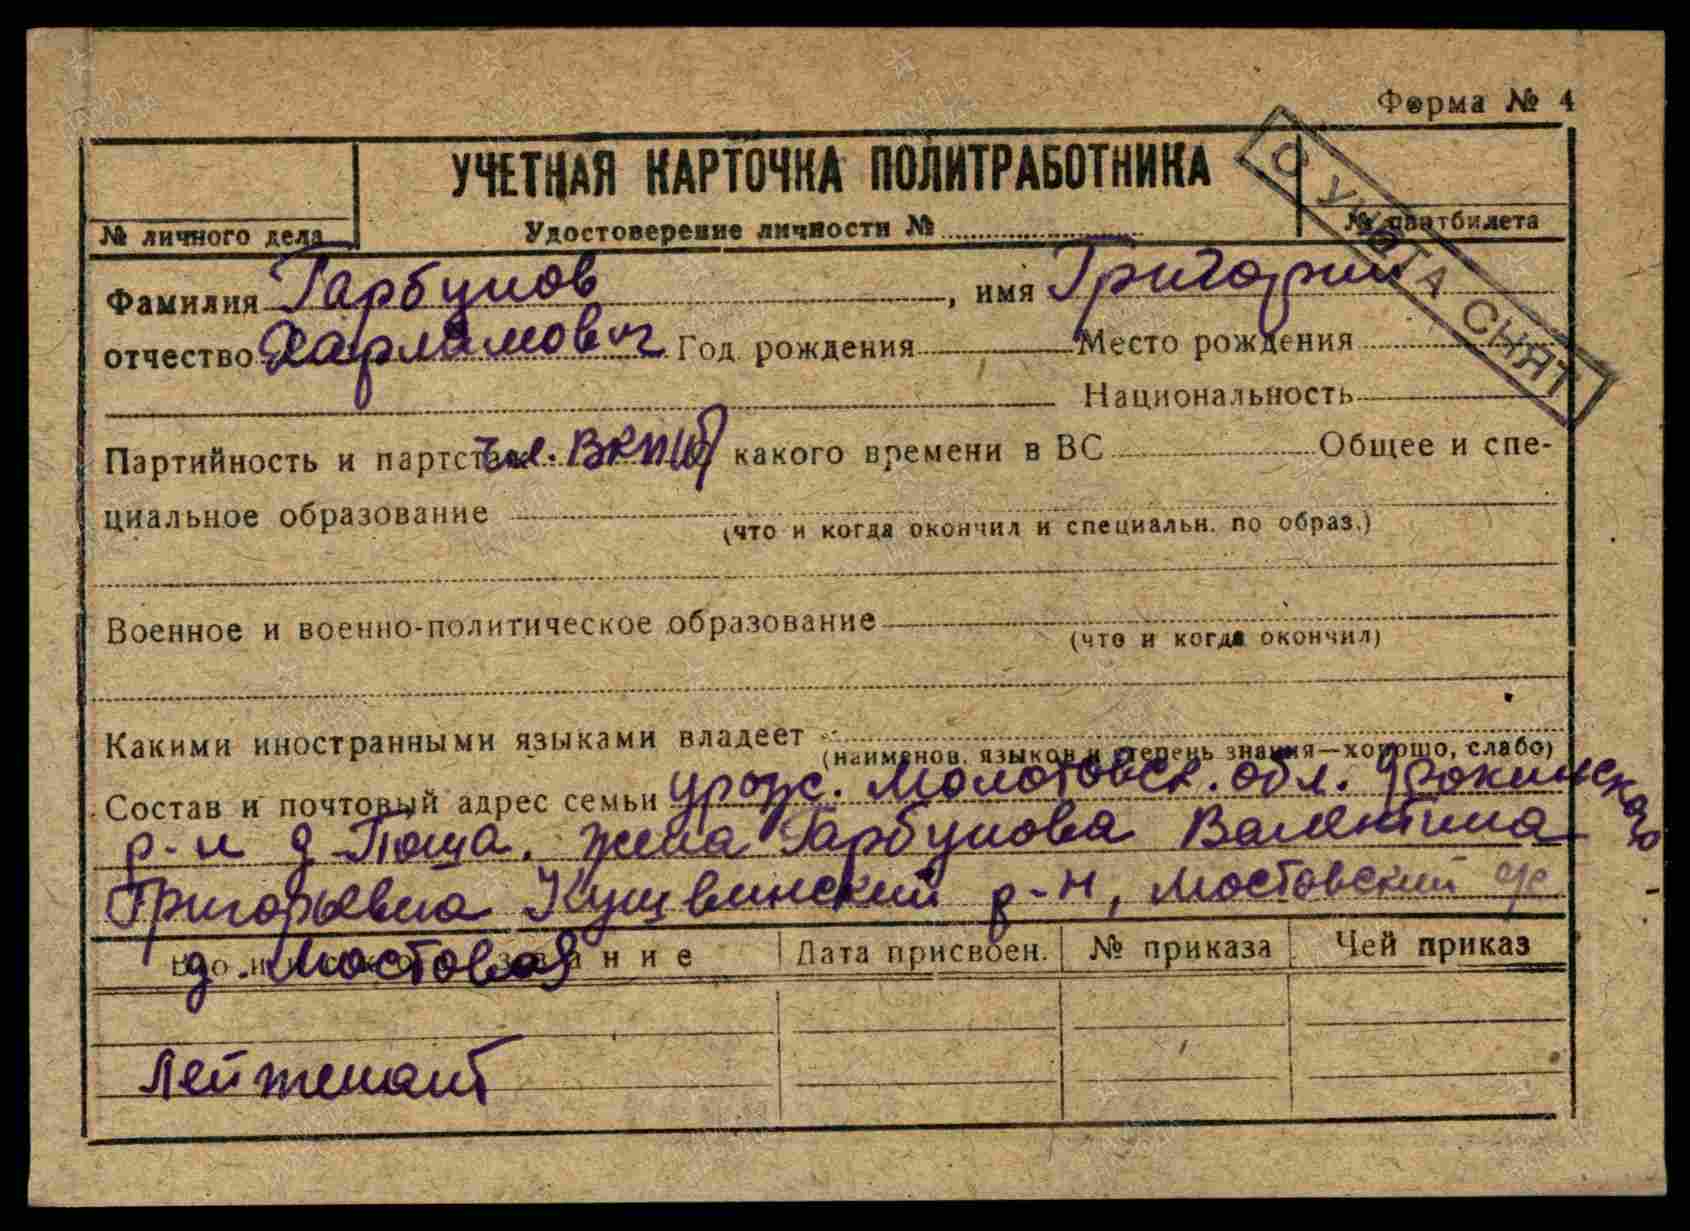 Форма № 4
УЧЕТНАЯ КАРТОЧКА ПОЛИТРАБОТНИКА
С УЧЕТА СНЯТ
№ личного дела
Удостоверение личности №
№ партбилета
Фамилия Гарбунов, имя Григорий
отчество Харламович Год рождения Место рождения
Национальность
Партийность и партстаж чл. ВКП(б) какого времени в ВС Общее и спе-
циальное образование
(что и когда окончил и специальн. по образ.)
Военное и военно-политическое образование
(что и когда окончил)
Какими иностранными языками владеет
(наименов. языков и степень знания—хорошо, слабо)
Состав и почтовый адрес семьи урож. Молотовск. обл.
р-н д. жена Гарбунова Валентина
Григорьевна Кущвинский р-н, Мостовский с/с
д. Мостовая
Воинское звание Дата присвоен. № приказа Чей приказ
Лейтенант